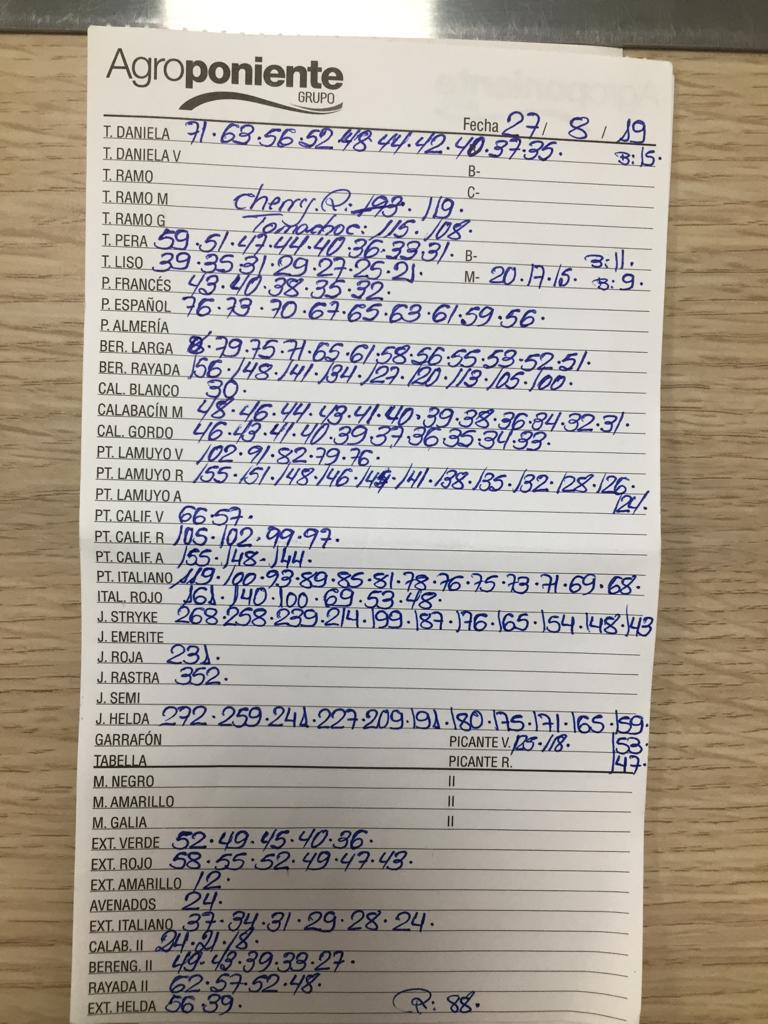 Agroponiente
GRUPO
Fecha 27/ 8 / 19
T. DANIELA 71·63·56·52·48·44·42·40·37·35· B:15·
T. DANIELA V B-
T. RAMO C-
T. RAMO M cherry. R: 119·
T. RAMO G 115·108·
T. PERA 59·51·47·44·40·36·33·31· B- B:11·
T. LISO 39·35·31·29·27·25·21· M- 20·17·15· B:9·
P. FRANCÉS 43·40·38·35·32·
P. ESPAÑOL 76·73·70·67·65·63·61·59·56·
P. ALMERÍA
BER. LARGA 79·75·71·65·61·58·56·55·53·52·51·
BER. RAYADA 156·148·141·134·127·120·113·105·100·
CAL. BLANCO 30·
CALABACÍN M 48·46·44·43·41·40·39·38·36·34·32·31·
CAL. GORDO 46·43·41·40·39·37·36·35·34·33·
PT. LAMUYO V 102·91·82·79·76·
PT. LAMUYO R 155·151·148·146·141·138·135·132·128·126·
PT. LAMUYO A 124·
PT. CALIF. V 66·57·
PT. CALIF. R 105·102·99·97·
PT. CALIF. A 155·148·144·
PT. ITALIANO 119·100·93·89·85·81·78·76·75·73·71·69·68·
ITAL. ROJO 161·140·100·69·53·48·
J. STRYKE 268·258·239·214·199·187·176·165·154·148·143
J. EMERITE
J. ROJA 231·
J. RASTRA 352·
J. SEMI
J. HELDA 272·259·241·227·209·191·180·175·171·165·159·
GARRAFÓN PICANTE V. 125·118· 153·
TABELLA PICANTE R. 147·
M. NEGRO II
M. AMARILLO II
M. GALIA II
EXT. VERDE 52·49·45·40·36·
EXT. ROJO 58·55·52·49·47·43·
EXT. AMARILLO 12·
AVENADOS 24·
EXT. ITALIANO 37·34·31·29·28·24·
CALAB. II 24·21·18·
BERENG. II 49·43·39·33·27·
RAYADA II 62·57·52·48·
EXT. HELDA 56·39· R: 88·